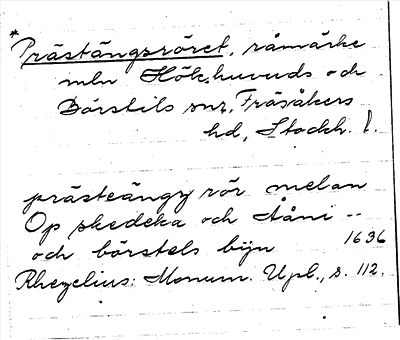 *Prästängsröret, råmärke
mln Hökhuvuds och
Börstils snr, Frösåkers
hd, Stockh. l.
prästeängz rör melan
Op skedeka ochÅåni --
och börstels byn 1636
Rhezelius: Monum. Upl., s. 112.